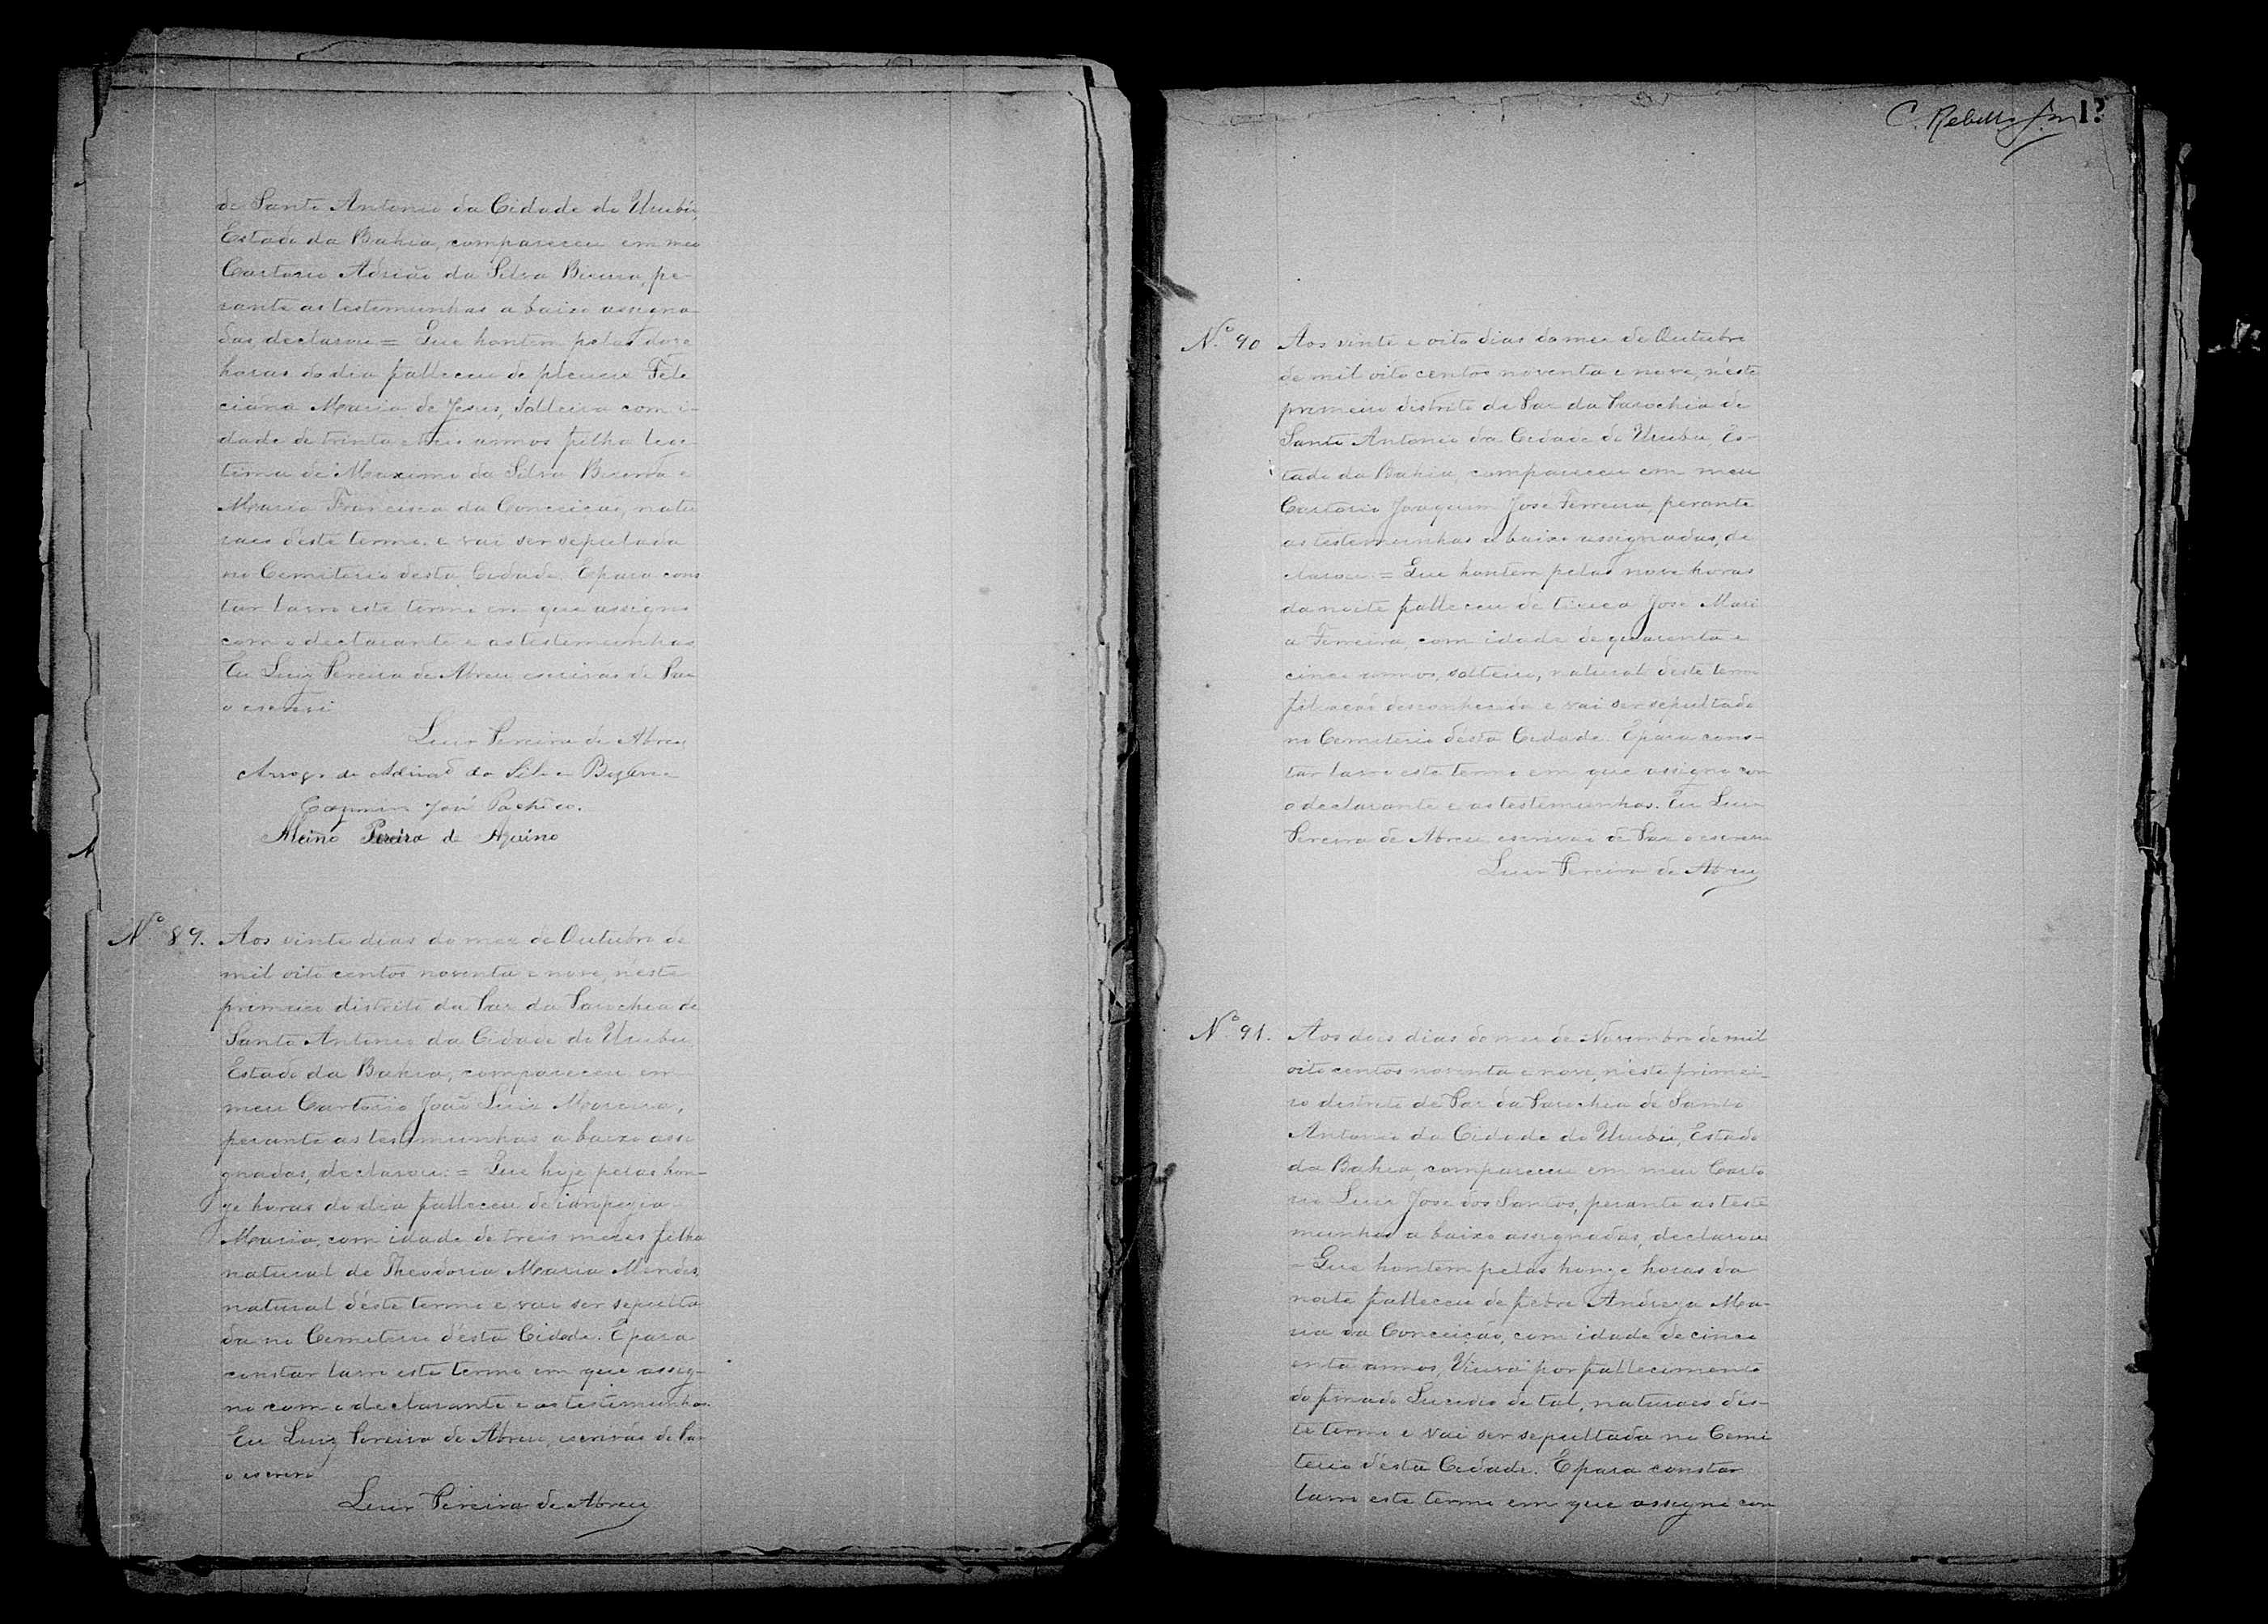 de Santo Antonio da Cidade do Urubú,
Estado da Bahia, compareceu em meu
Cartorio Adrião da Silva Biserra, pe-
rante as testemunhas a baixo assigna-
das, declarou = Que hontem pelas doze
horas do dia falleceu de pleuriz Feli
ciana Maria de Jesus, solteira com i-
dade de trinta annos filha legi-
tima de Maximo da Silva Biserra e
Maria Francisca da Conceição, natu
raes deste termo. e vai ser sepultada
no Cemiterio desta Cidade. E para cons
tar lavro este termo em que assigno
com o declarante e as testemunhas
Eu Luiz Pereira de Abreu, escrivão de Paz
o escrevi
Luiz Pereira de Abreu
Arrogo de Adrião da Silva Bizerra
José Pacheco.
Pereira de Aquino
Nº 89. Aos vinte dias do mez de Outubro de
mil oito centos noventa e nove, n'este
primeiro districto da Paz da Parochia de
Santo Antonio da Cidade do Urubu
Estado da Bahia, compareceu em
meu Cartorio João Luiz Moreira,
perante as testemunhas a baixo assi
gnadas, declarou: = Que hoje pelas hon-
ze horas do dia falleceu de
Maria, com idade de treis mezes filha
natural de Theodoria Maria Mendes,
natural d'este termo e vai ser sepulta
da no Cemiterio d'esta Cidade. E para
constar lavro este termo em que assig-
no com o declarante e as testemunhas.
Eu Luiz Pereira de Abreu, escrivão de Paz
o escrevi
Luiz Pereira de Abreu
C. Rebello Jor
Nº 90 Aos vinte e oito dias do mez de Outubro
de mil oito centos noventa e nove, n'este
primeiro districto de Paz da Parochia de
Santo Antonio da Cidade do Urubu Es-
tado da Bahia, compareceu em meu
Cartorio Joaquim José Ferreira, perante
as testemunhas a baixo assignadas, de
clarou: = Que hontem pelas nove horas
da noite falleceu de José Mari
a Ferreira, com idade de quarenta e
cinco annos, solteiro, natural deste termo
filiação desconhecida e vai ser sepultado
no Cemiterio d'esta Cidade. E para cons-
tar lavro este termo em que assigno com
o declarante e as testemunhas. Eu Luiz
Pereira de Abreu escrivão de Paz o escrevi
Luiz Pereira de Abreu
Nº 91. Aos dois dias do mez de Novembro de mil
oito centos noventa e nove, n'este primei-
ro districto de Paz da Parochia de Santo
Antonio da Cidade do Urubú, Estado
da Bahia, compareceu em meu Carto
rio Luiz José dos Santos, perante as teste
munhas a baixo assignadas, declarou
= Que hontem pelas honze horas da
noite falleceu de febre Andreza Ma-
ria da Conceição, com idade de cinco
enta annos, Viuva por fallecimento
do finado de tal, naturaes d'es-
te termo e vai ser sepultada no Cemi
terio d'esta Cidade. E para constar
lavro este termo em que assigno com